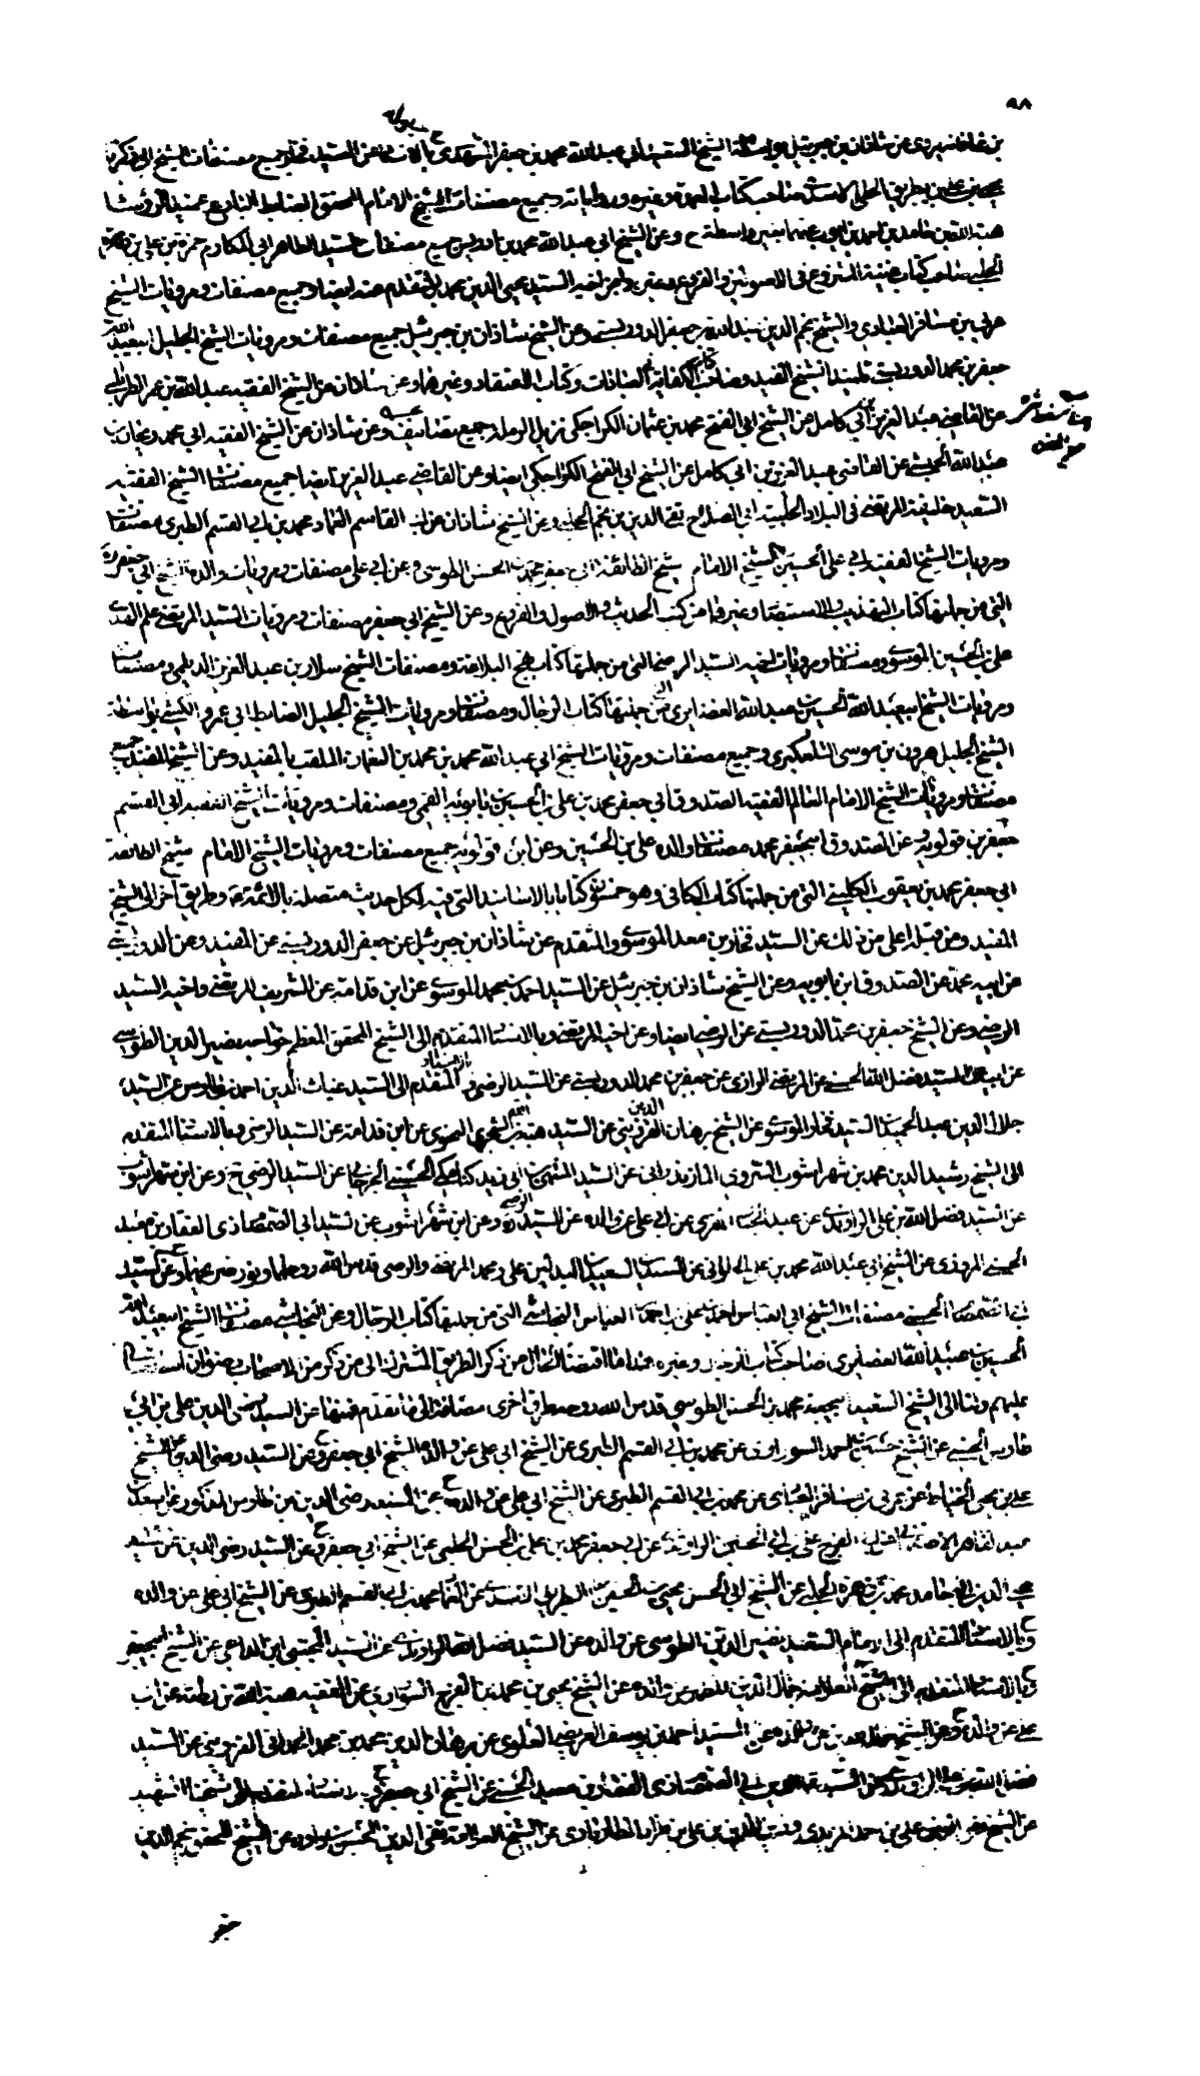 ٩٨
بن شاذان بن جبرئيل بواسطة الشيخ السعيد ابي عبد الله محمد بن جعفر المشهدي عن السيد فخار جميع مصنفات الشيخ
يحيى بن علي بن بطريق الحلي الاسدي صاحب كتاب العمدة وغيره ورواياته وجميع مصنفات الشيخ الامام المحقق الضابط البارع عميد الرؤسا
هبة الله بن حامد بن احمد بن ايوب عنهما بغير واسطة ح وعن الشيخ ابي عبد الله محمد بن ادريس جميع مصنفات السيد الطاهر ابي المكارم حمزة بن علي بن زهرة
الحلبي صاحب كتاب غنية النزوع في الاصولين والفروع وغيره وعن السيد محيى الدين محمد المتقدم عنه ايضا وجميع مصنفات ومرويات الشيخ
عربي بن مسافر العبادي والشيخ نجم الدين عبد الله بن جعفر الدوريستي وعن الشيخ شاذان بن جبرئيل جميع مصنفات ومرويات الشيخ الجليل ابي عبد الله
جعفر بن محمد الدوريستي تلميذ الشيخ المفيد وصاحب كتاب الكفاية في العبادات وكتاب الاعتقاد وغيرهما وعن شاذان عن الشيخ الفقيه عبد الله بن عمر الطرابلسي
عن القاضي عبد العزيز بن ابي كامل عن الشيخ ابي الفتح محمد بن عثمان الكراجكي نزيل الرملة وجميع تصانيفه وعن شاذان عن الشيخ الفقيه ابي محمد ريحان بن
عبد الله الحبشي عن القاضي عبد العزيز بن ابي كامل عن الشيخ ابي الفتح الكراجكي ايضا وعن القاضي عبد العزيز ايضا جميع مصنفات الشيخ الفقيه
السعيد خليفة المرتضى في البلاد الحلبية ابي الصلاح تقي الدين بن نجم الحلبي وعن الشيخ شاذان عن ابي القاسم العماد محمد بن ابي القسم الطبري مصنفات
ومرويات الشيخ الفقيه ابي علي الحسين الشيخ الامام شيخ الطائفة ابي جعفر محمد بن الحسن الطوسي وعن ابي علي مصنفات ومرويات والده الشيخ ابي جعفر
التي من جملتها كتاب التهذيب والاستبصار وغيرهما من كتب الحديث والاصول والفروع وعن الشيخ ابي جعفر مصنفات ومرويات السيد المرتضى علم الهدى
علي بن الحسين الموسوي ومصنفات ومرويات اخيه السيد الرضي التي من جملتها كتاب نهج البلاغة ومصنفات الشيخ سلار بن عبد العزيز الديلمي ومصنفات
ومرويات الشيخ ابي عبد الله الحسين بن عبيد الله الغضايري التي من جملتها كتاب الرجال ومصنفات ومرويات الشيخ الجليل الضابط ابي عمرو الكشي بواسطة
الشيخ الجليل هرون بن موسى التلعكبري وجميع مصنفات ومرويات الشيخ ابي عبد الله محمد بن محمد بن النعمان الملقب بالمفيد وعن الشيخ المفيد جميع
مصنفات ومرويات الشيخ الامام العالم الفقيه الصدوق ابي جعفر محمد بن علي بن الحسين بن بابويه القمي ومصنفات ومرويات الشيخ الفقيه ابي القسم
جعفر بن قولويه وعن الصدوق ابي جعفر محمد مصنفات والده علي بن الحسين وعن ابن قولويه جميع مصنفات ومرويات الشيخ الامام شيخ الطائفة
ابي جعفر محمد بن يعقوب الكليني التي من جملتها كتاب الكافي وهو خمسون كتابا بالاسانيد التي فيه لكل حديث متصلة بالائمة وطريق اخر الى الشيخ
المفيد ومن قبله اعلى من ذلك عن السيد فخار بن معد الموسوي والمتقدم عن شاذان بن جبرئيل عن جعفر الدوريستي عن المفيد وعن الدوريستي
عن ابيه محمد عن الصدوق ابن بابويه وعن الشيخ شاذان بن جبرئيل عن السيد احمد بن محمد الموسوي عن ابن قدامة عن الشريف المرتضى واخيه السيد
الرضي وعن الشيخ جعفر بن محمد الدوريستي عن الرضي ايضا وعن اخيه المرتضى وبالاسناد المتقدم الى الشيخ المحقق المعظم خواجه نصير الدين الطوسي
عن ابيه عن السيد فضل الله الحسني عن المرتضى الرازي عن جعفر بن محمد الدوريستي عن السيد الرضي وبالاسناد المتقدم الى السيد غياث الدين احمد بن طاوس عن السيد
جلال الدين عبد الحميد بن السيد فخار الموسوي عن الشيخ برهان الدين القزويني عن السيد هبة الله الشجري النحوي عن ابن قدامة عن السيد الرضي وبالاسناد المتقدم
الى الشيخ رشيد الدين محمد بن شهراشوب السروي المازندراني عن السيد المنتهى بن ابي زيد كيابكي الحسيني الجرجاني عن السيد الرضي ح وعن ابن شهراشوب
عن السيد فضل الله بن علي الراوندي عن عبد الجبار المقري عن ابي علي عن والده عن السيد الرضي وعن ابن شهراشوب عن السيد ابي الصمصام ذي الفقار بن معبد
الحسني المروزي عن الشيخ ابي عبد الله محمد بن علي الحلواني عن السيدين السعيدين علي ومحمد المرتضى والرضي قدس الله روحهما ونور ضريحهما وعن السيد
ابي الصمصام الحسني مصنفات الشيخ ابي العباس احمد بن علي بن احمد بن العباس النجاشي التي من جملتها كتاب الرجال وعن النجاشي مصنفات الشيخ ابي عبد الله
الحسين بن عبيد الله الغضايري صاحب كتاب الرجال وغيره هذا ما اقتضاه الحال من ذكر الطريق المشترك الى من ذكر من الاصحاب رضوان الله
عليهم ولنا الى الشيخ السعيد ابي جعفر محمد بن الحسن الطوسي قدس الله روحه طرق اخرى مضافة الى ما تقدم فمنها عن السيد رضي الدين علي بن
طاوس الحسني عن الشيخ حسين بن احمد السوراوي عن محمد بن ابي القسم الطبري عن الشيخ ابي علي عن والده الشيخ ابي جعفر وعن السيد رضي الدين عن الشيخ
علي بن يحيى الخياط عن عربي بن مسافر العبادي عن محمد بن ابي القسم الطبري عن الشيخ ابي علي عن والده ح عن السيد رضي الدين بن طاوس المذكور عن اسعد بن
عبد القاهر الاصفهاني عن ابي الفرج علي بن ابي الحسين الراوندي عن ابي جعفر محمد بن علي بن الحسن الحلبي عن الشيخ ابي جعفر ح وعن السيد رضي الدين عن السيد
محيى الدين ابي حامد محمد بن زهرة الحلبي عن الشيخ ابي الحسن يحيى بن الحسين بن البطريق الاسدي عن العماد محمد بن ابي القسم الطبري عن الشيخ ابي علي عن والده
وبالاسناد المتقدم الى الامام السعيد نصير الدين الطوسي عن والده عن السيد فضل الله الراوندي عن السيد المجتبى ابن الداعي عن الشيخ ابي جعفر
وبالاسناد المتقدم الى الشيخ العلامة جمال الدين بن المطهر عن والده عن الشيخ يحيى بن محمد بن الفرج السوراوي عن الفقيه هبة الله بن رطبة عن ابي
علي عن والده وعن الشيخ عن والده عن السيد احمد بن يوسف العريضي العلوي عن برهان الدين محمد بن محمد الحمداني القزويني عن السيد
فضل الله بن علي الراوندي عن السيد عماد الدين ابي الصمصام ذي الفقار بن معبد الحسني عن الشيخ ابي جعفر ح وبالاسناد المتقدم الى شيخنا الشهيد
عن الشيخ رضي الدين علي بن احمد المزيدي وزين الدين علي بن طراد المطارباذي عن الشيخ العلامة تقي الدين الحسن بن داود عن الشيخ المحقق نجم الدين
جعفر